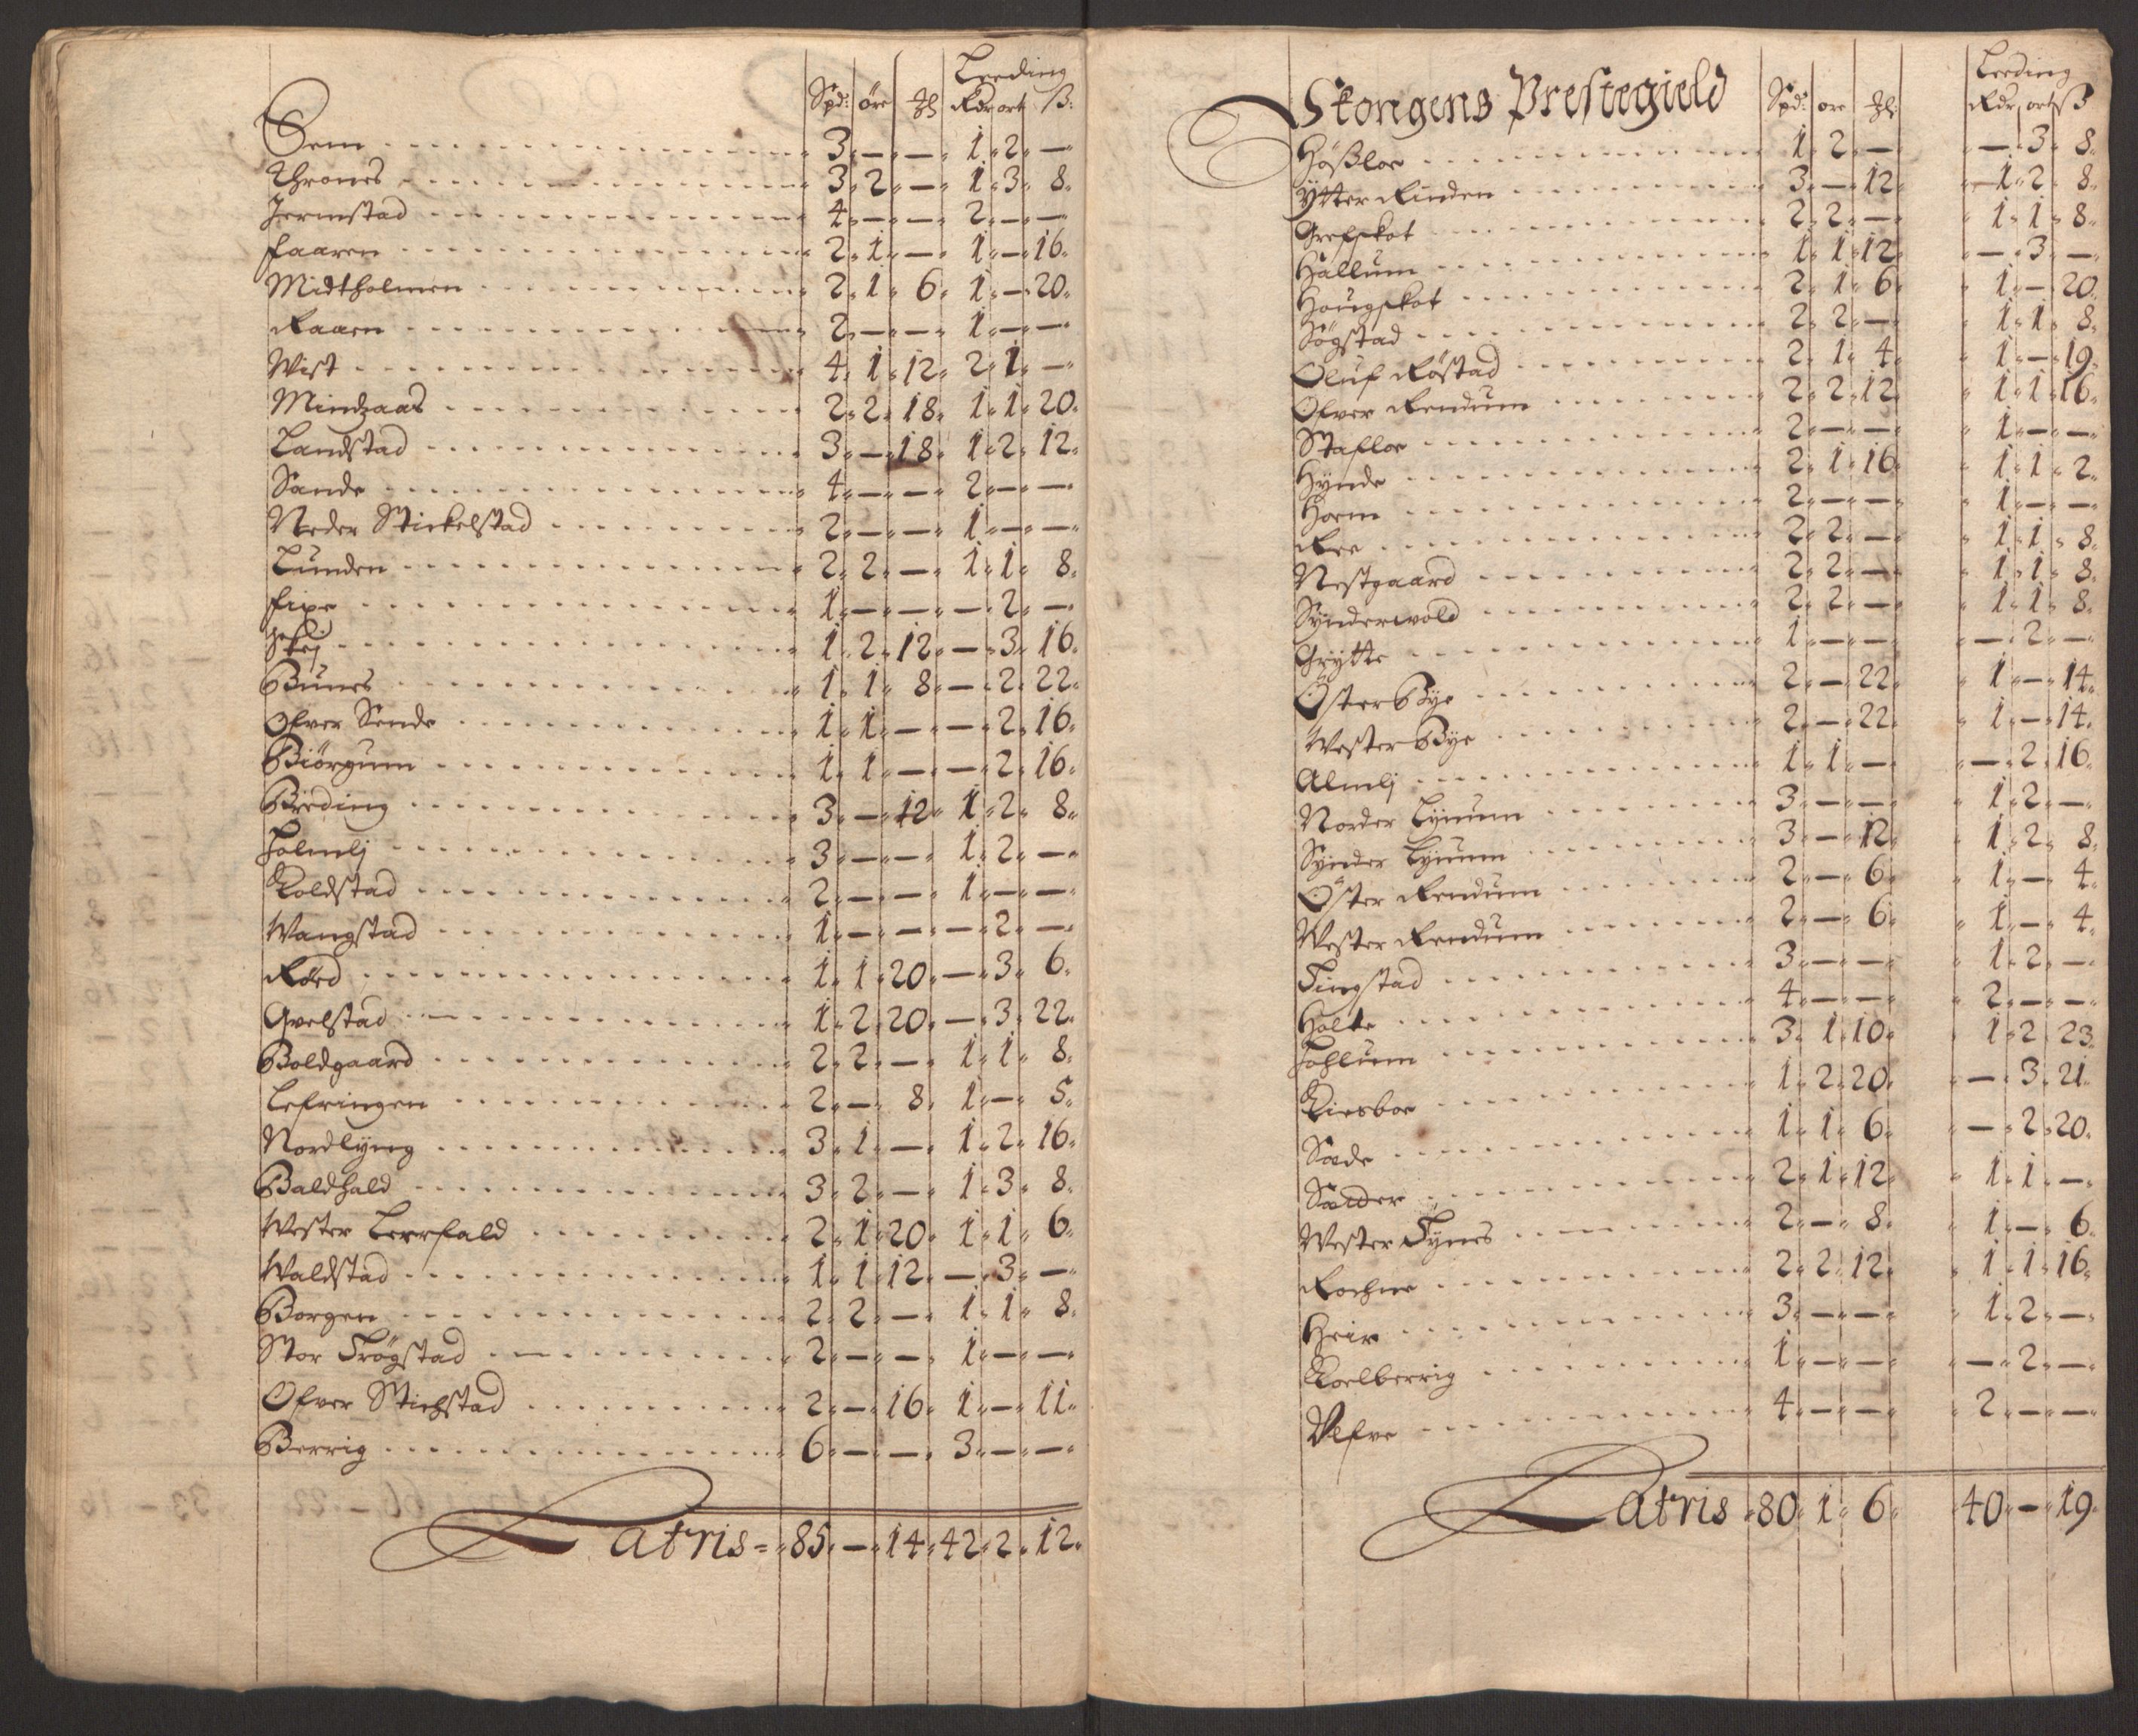 Leeding
Spd: öre ℔ Rdr ort ß:
Sem 3 — — 1 2 —
Thrones 3 2 — 1 3 8
Jermstad 4 — — 2 — —
Faaren 2 1 — 1 — 16
Midtholmen 2 1 6 1 — 20
Raaen 2 — — 1 — —
Wist 4 1 12 2 1 —
Mindzaas 2 2 18 1 1 20
Landstad 3 — 18 1 2 12
Sande 4 — — 2 — —
Neder Stickelstad 2 — — 1 — —
Lunden 2 2 — 1 1 8
1 — — — 2 —
1 2 12 — 3 16
Bunes 1 1 8 — 2 22
Ofver Sende 1 1 — — 2 16
Biörgum 1 1 — — 2 16
Breding 3 — 12 1 2 8
Holmlj 3 — — 1 2 —
Koldstad 2 — — 1 — —
Wangstad 1 — — — 2 —
Röed 1 1 20 — 3 6
Qvelstad 1 2 20 — 3 22
Boldgaard 2 2 — 1 1 8
Lefringen 2 — 8 1 — 5
Nordlÿng 3 1 — 1 2 16
Baldhald 3 2 — 1 3 8
Wester Leerfald 2 1 20 1 1 6
Waldstad 1 1 12 — 3 —
Borgen 2 2 — 1 1 8
Stor Trögstad 2 — — 1 — —
Ofver Stichstad 2 — 16 1 — 11
Berrig 6 — — 3 — —
Latris 85 — 14 42 2 12
Leeding
Skongens Prestegield Spd: ore ℔: Rdr ort ß
Hößloe 1 2 — — 3 8
Ytter Rinden 3 — 12 1 2 8
Grefskot 2 2 — 1 1 8
Hallum 1 1 12 — 3 —
Hougskot 2 1 6 1 — 20
Sögstad 2 2 — 1 1 8
Oluf Röstad 2 1 4 1 — 19
Ofver Rendum 2 2 12 1 1 16
Stafloe 2 — — 1 — —
Hÿnde 2 1 16 1 1 2
Horm 2 — — 1 — —
Ree 2 2 — 1 1 8
Nestgaard 2 2 — 1 1 8
Sÿnderwold 2 2 — 1 1 8
Grÿtte 1 — — — 2 —
Öster Bye 2 — 22 1 — 14
Wester Bye 2 — 22 1 — 14
Almlj 1 1 — — 2 16
Norder Lÿnum 3 — — 1 2 —
Sÿnder Lÿnum 3 — 12 1 2 8
Öster Rendum 2 — 6 1 — 4
Wester Rendum 2 — 6 1 — 4
Tingstad 3 — — 1 2 —
Holte 4 — — 2 — —
Hahlum 3 1 10 1 2 23
Kiesboe 1 2 20 — 3 21
Sæde 1 1 6 — 2 20
Sæder 2 1 12 1 1 —
Wester Fÿnes 2 — 8 1 — 6
Rochne 2 2 12 1 1 16
Heir 3 — — 1 2 —
Koelberrig 1 — — — 2 —
Ulfve 4 — — 2 — —
Latris 80 1 6 40 — 19